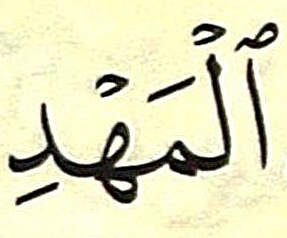 ٱلْمَهْدِ